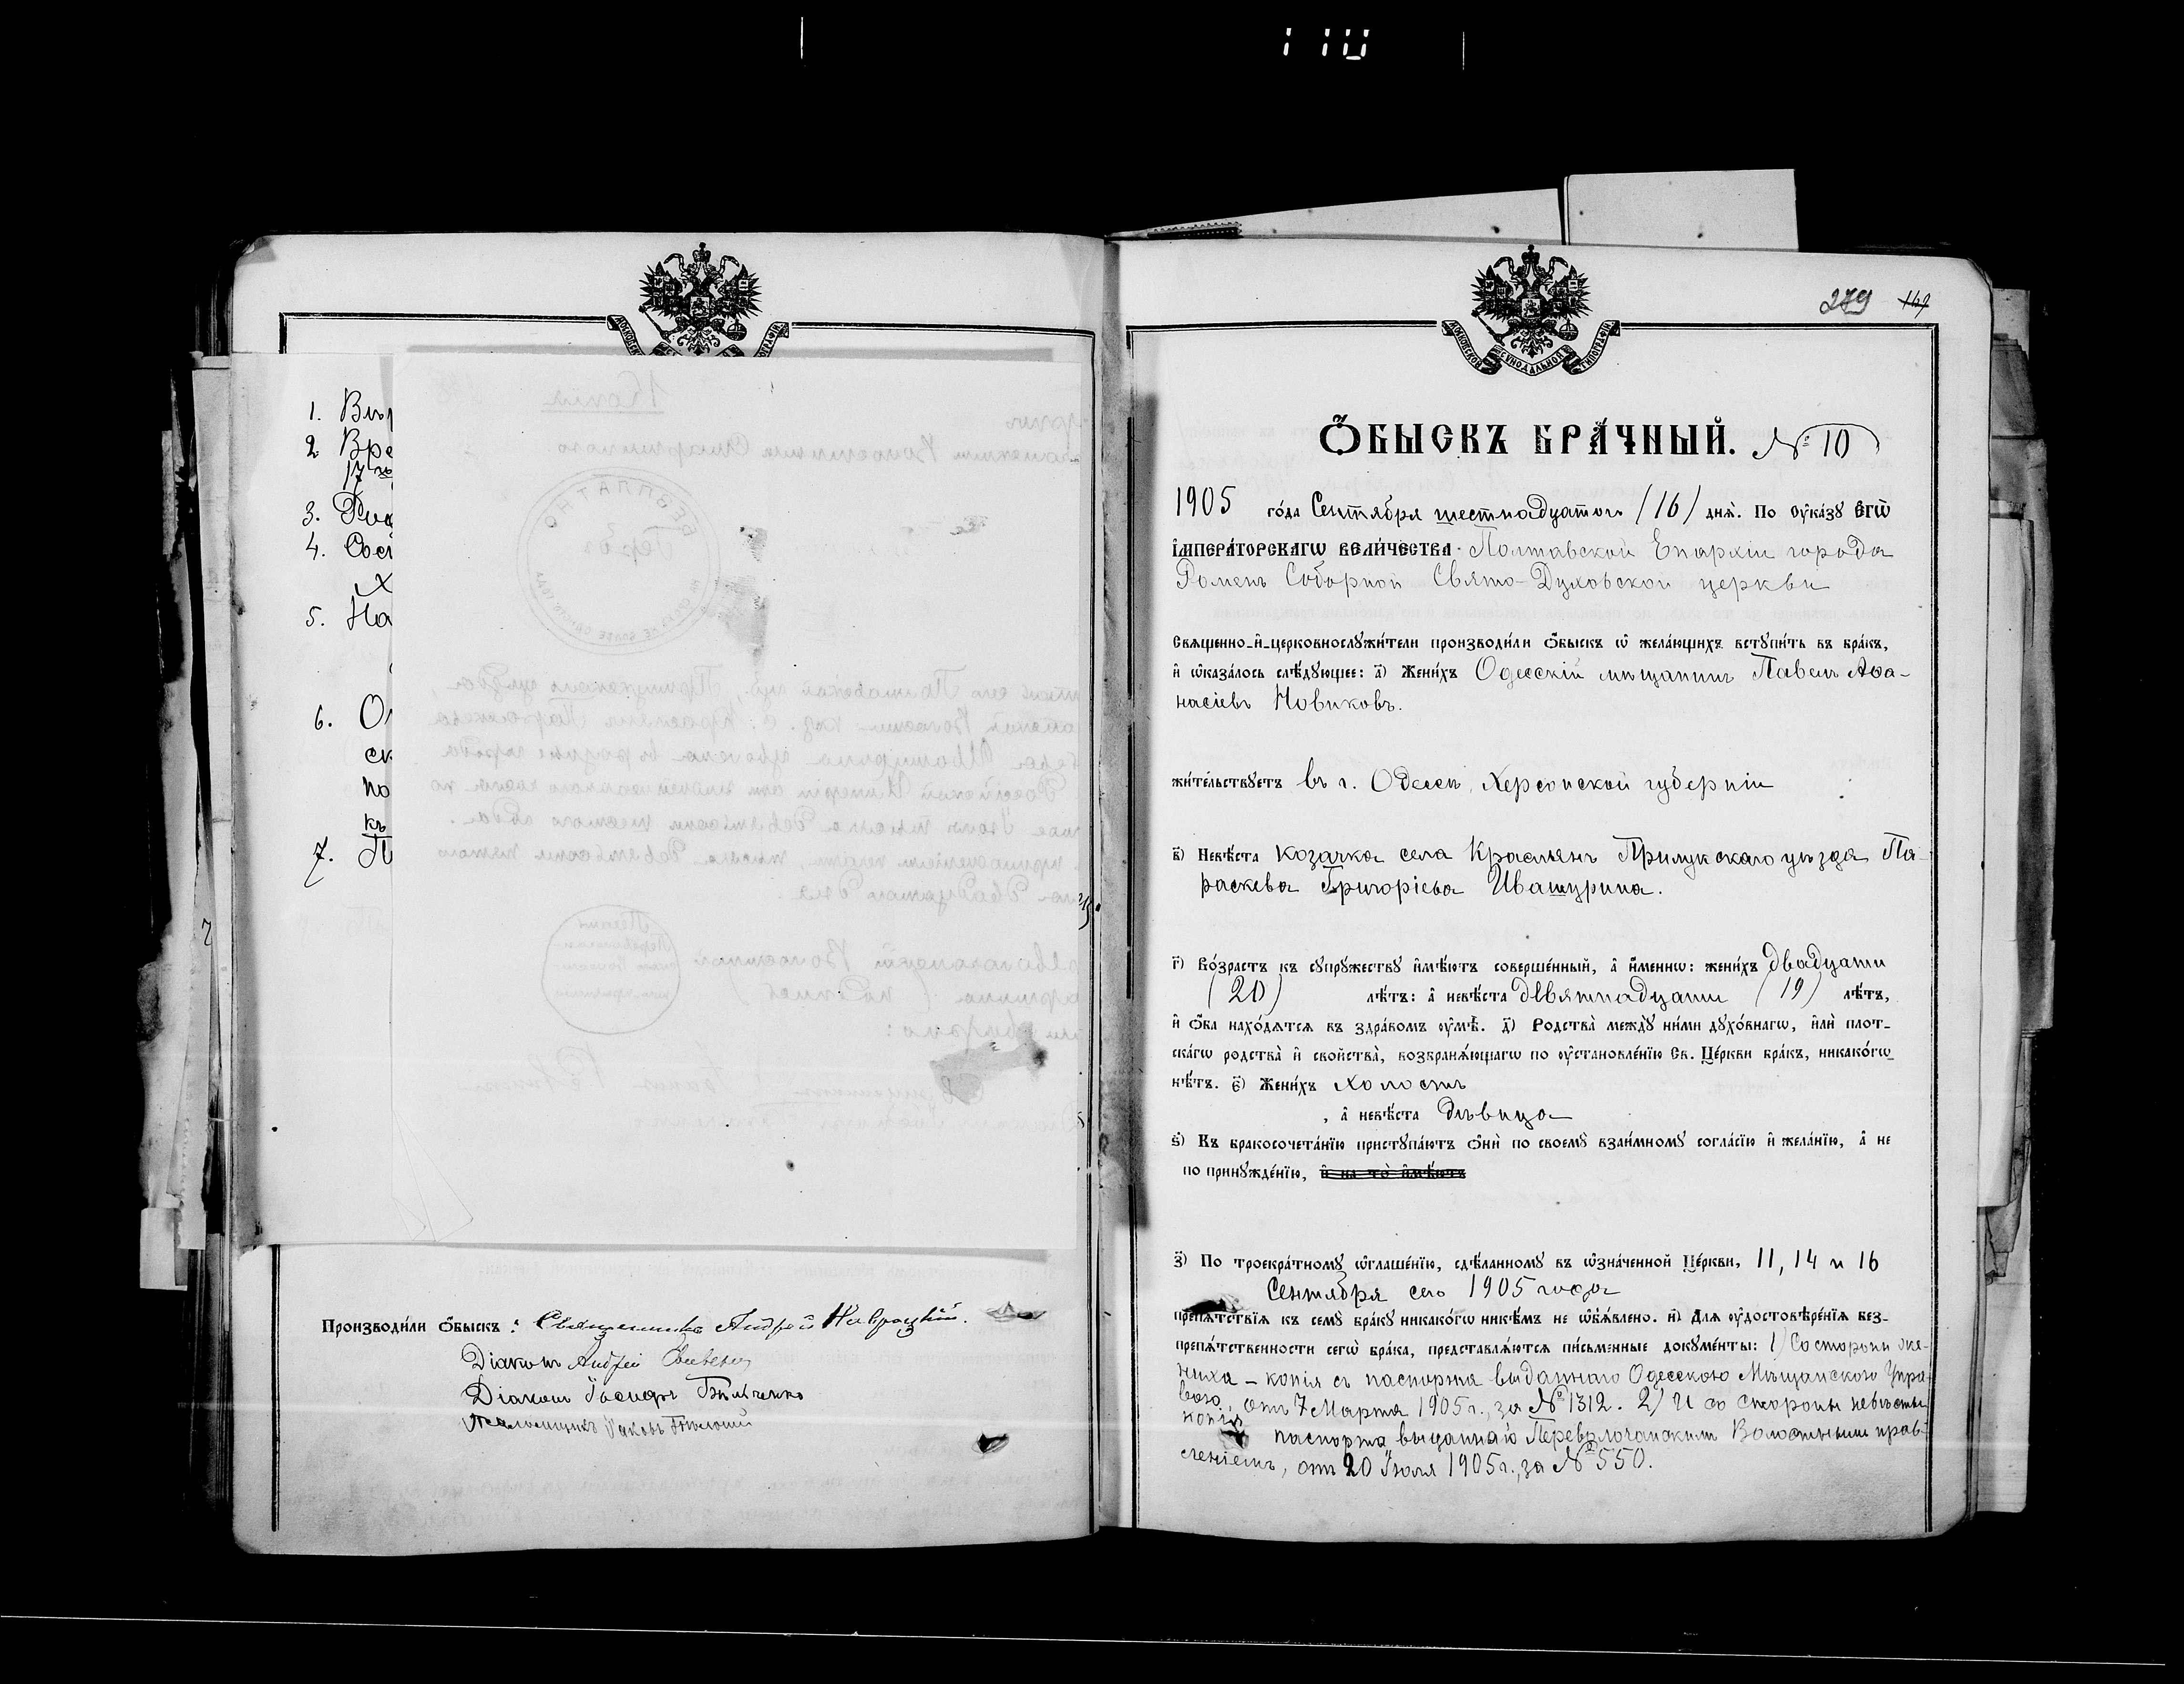 110
1. Вы
2. Вре
17 го
3. Род
4. Сос
Х
5. На
6. Ол
ск
по
къ
7. П
Произвóдили ѻ҆́быскъ: Священникъ Андрей Навроцкій.
Діаконъ Андрей
Діаконъ Іосифъ Бѣльченко
Псаломщикъ Іаковъ
279 149
МОСКОВСКОЙ СѴНОДАЛЬНОЙ ТИПОГРАФІИ
Ѻ҆БЫСКЪ БРА́ЧНЫЙ. № 10
1905 го́да Сентября шестнадцатого /16/ днѧ̀. По ᲂу҆ка́зꙋ Е҆гѡ̀
І҆мпера́торскагѡ вели́чества Полтавской Епархіи города
Роменъ Соборной Свято-Духовской церкви
Свѧще́нно-и҆-церковнослꙋжи́тели производи́ли ѻ҆́быскъ ѡ҆ жела́ющихъ встꙋпи́ть въ бра́къ,
и҆ ѡ҆каза́лось слѣ́дꙋющее: а҃) Жени́хъ Одесскій мѣщанинъ Павелъ Аѳа-
насіевъ Новиковъ.
жи́тельствꙋетъ въ г. Одессѣ, Херсонской губерніи
в҃) Невѣ́ста козачка села Краслянъ Прилукскаго уѣзда Па-
раскева Григоріева Ивашурина.
г҃) Во́зрастъ къ сꙋпрꙋ́жествꙋ и҆мѣ́ютъ соверше́нный, а҆ и҆́меннѡ: жени́хъ двадцати
(20) лѣ́тъ: а҆ невѣ́ста девятнадцати (19) лѣ́тъ,
и҆ ѻ҆́ба нахо́дѧтсѧ въ здра́вомъ ᲂу҆мѣ̀. д҃) Родства̀ междꙋ̀ ни́ми дꙋхо́внагѡ, и҆лѝ плот-
ска́гѡ родства̀ и҆ свойства̀, возбранѧ́ющагѡ по ᲂу҆становле́нїю Св. Це́ркви бра́къ, никако́гѡ
нѣ́тъ. є҃) Жени́хъ холостъ
, а҆ невѣ́ста дѣвица
ѕ҃) Къ бракосочета́нїю пристꙋпа́ютъ ѻ҆нѝ по своемꙋ̀ взаи́мномꙋ согла́сїю и҆ жела́нїю, а҆ не
по принꙋжде́нїю, и҆ на то̀ и҆мѣ́ютъ
з҃) По троекра́тномꙋ ѡ҆глаше́нїю, сдѣ́ланномꙋ въ ѡ҆зна́ченной Це́ркви, 11, 14 и 16
Сентября сего 1905 года
препѧ́тствїѧ къ семꙋ̀ бра́кꙋ никако́гѡ никѣ́мъ не ѡ҆б̾ѧ́влено. и҃) Для ᲂу҆достовѣре́нїѧ без-
препѧ́тственности сегѡ̀ бра́ка, представлѧ́ютсѧ пи́сьменные докꙋме́нты: 1) Со стороны же-
ниха – копія съ паспорта выданнаго Одесскою Мѣщанского Упра-
вою, отъ 7 Марта 1905 г., за № 1312. 2) И со стороны невѣсты
копія паспорта выданнаго Переволочанскимъ Волостнымъ прав-
леніемъ, отъ 20 Іюля 1905 г., за № 550.